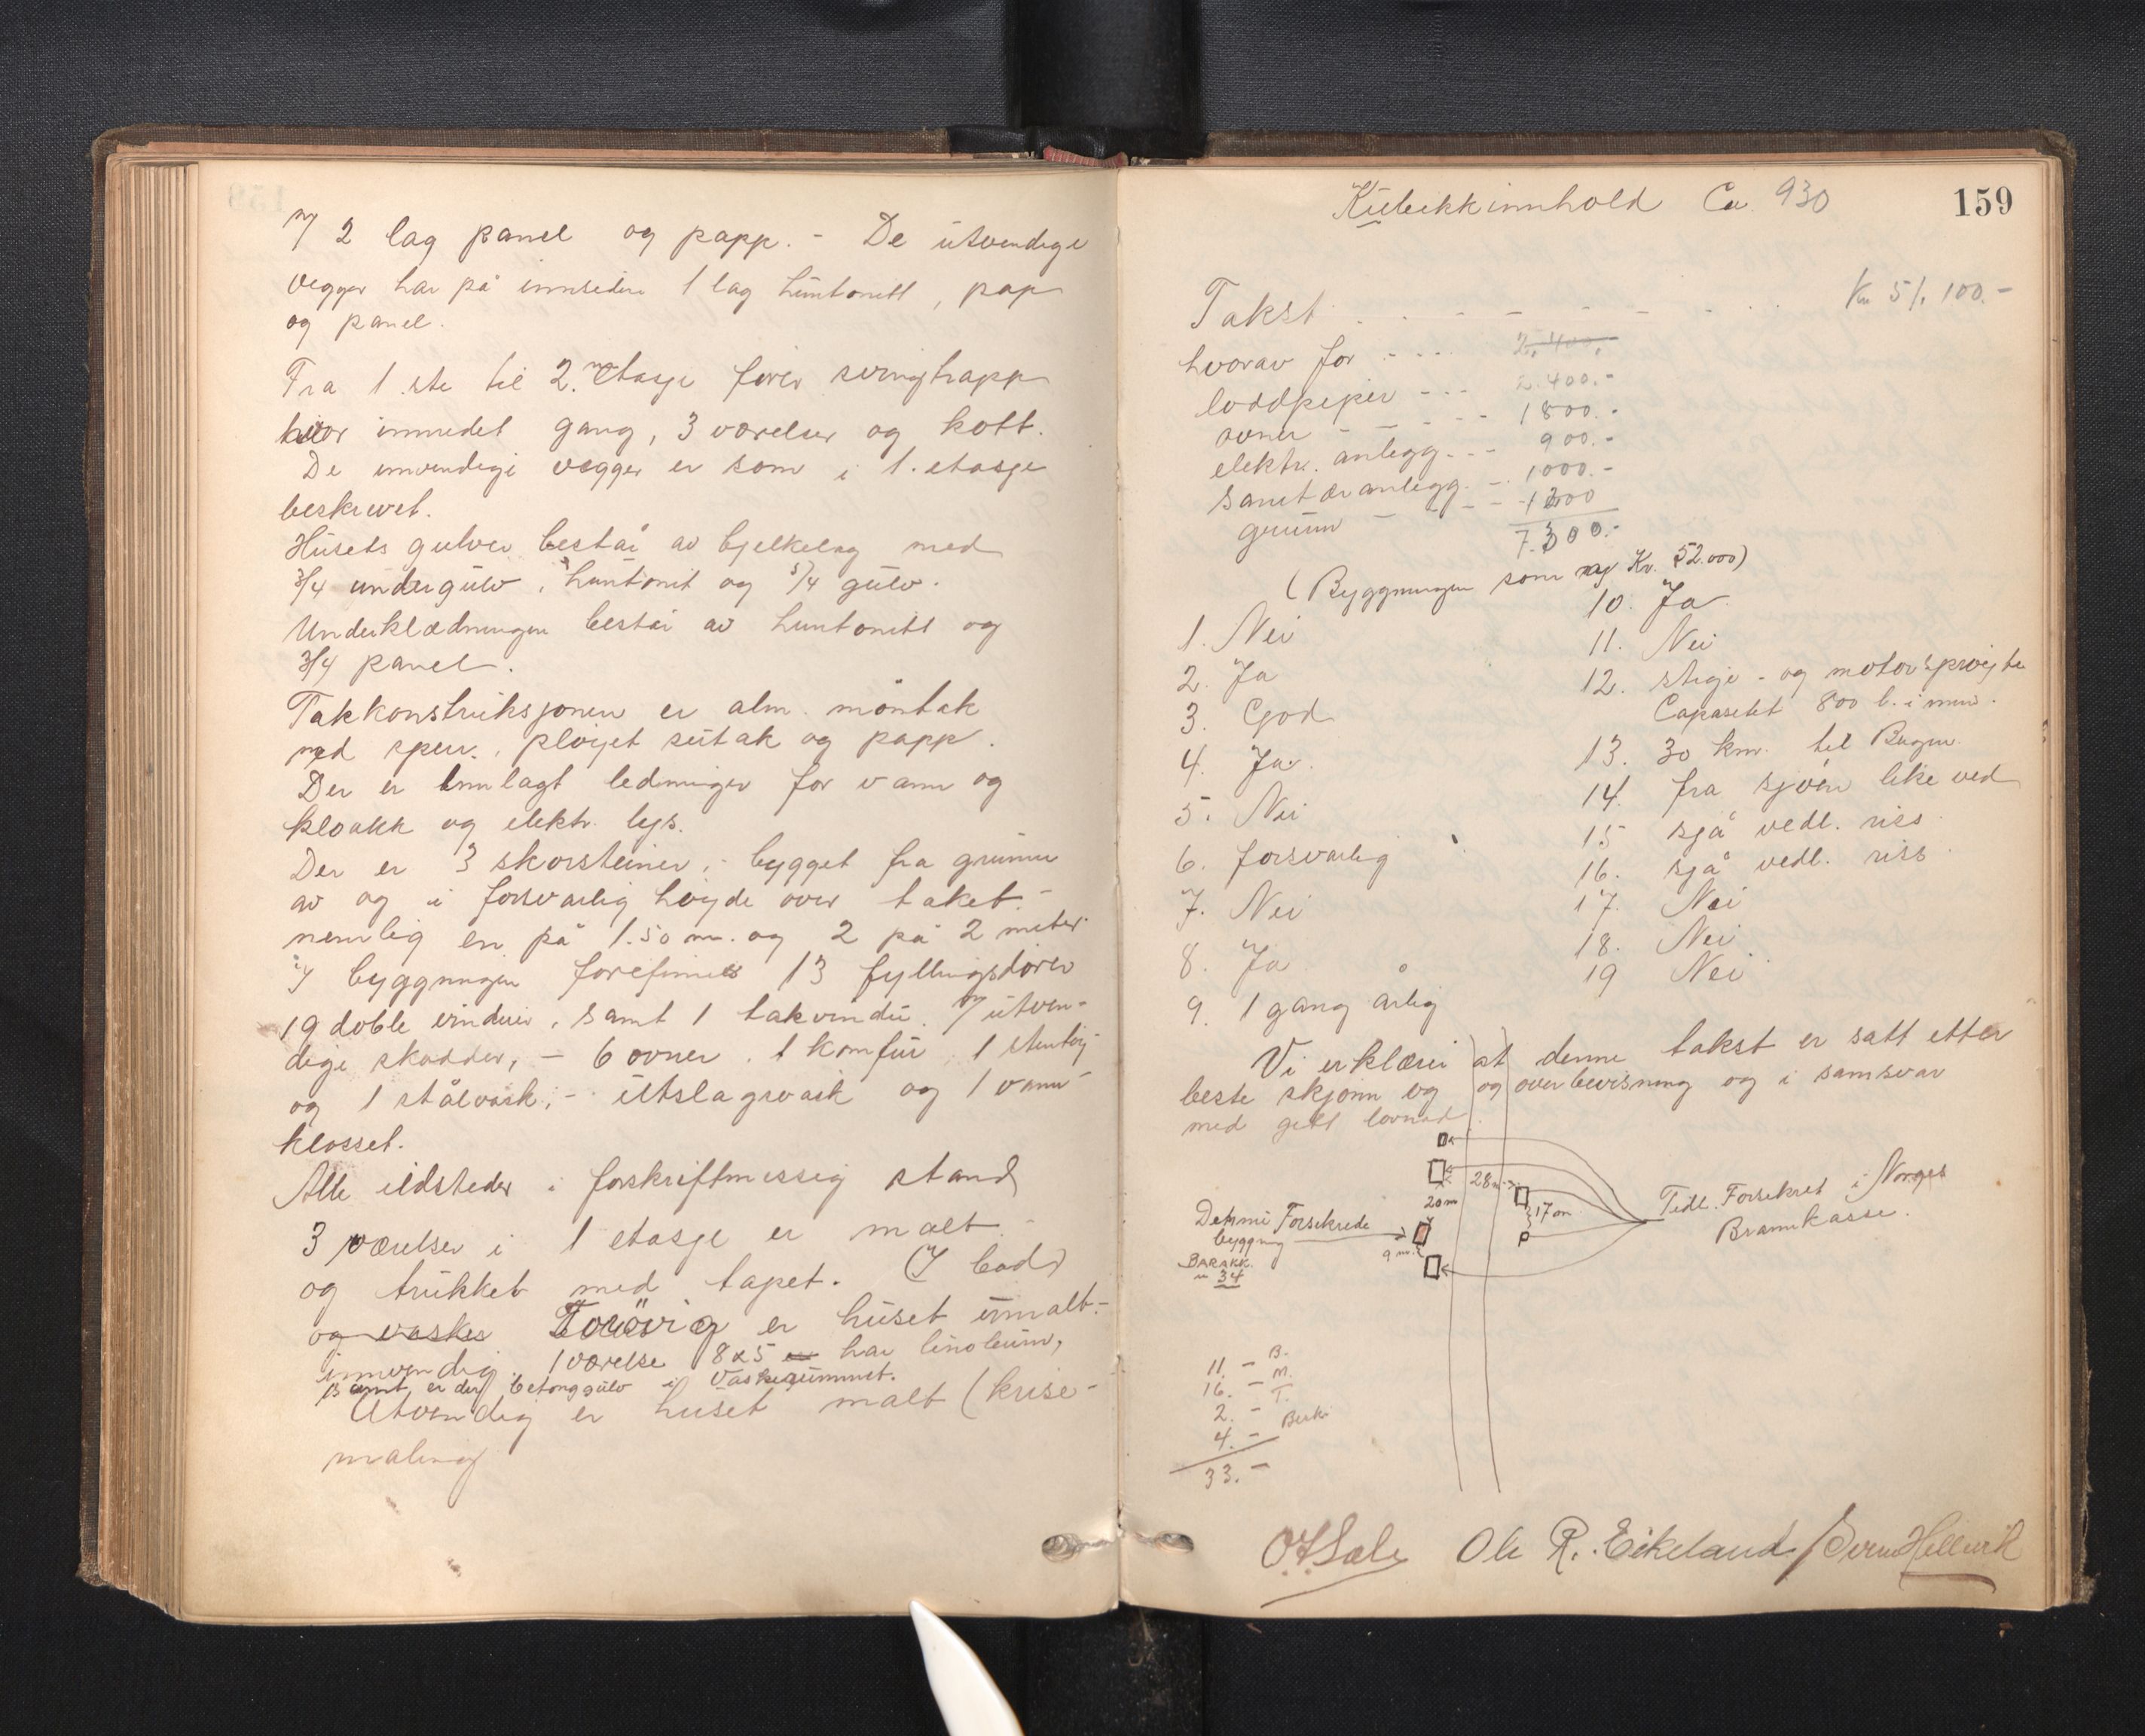 2 lag panel og papp. - De utvendige
vegger har på innsiden 1 lag huntonitt, pap
og panel.
Fra 1 ste til 2. etasje fører svingtrapp
hvor innredet gang, 3 værelser og kott.
De innvendige vegger er som i 1. etasje
beskrevet.
Husets gulver består av bjelkelag med
3/4 undergulv, huntonit og 5/4 gulv.
Underklædningen består av huntonitt og
3/4 panel.
Takkonstruksjonen er alm. møntak
med sperr, pløyet sutak og papp.
Der er innlagt ledninger for vann og
kloakk og elektr. lys.
Der er 3 skorsteiner, - bygget fra grunn
av og i forsvarlig høyde over taket. -
nemlig en på 1.50 m. og 2 på 2 meter
I byggningen forefinnes 13 fyllingsdører
19 doble vinduer, samt 1 takvindu. 7 utven-
dige skodder, - 6 ovner, 1 komfur, 1 stentøj
og 1 stålvask, - utslagsvask og 1 vann-
klosset.
Alle ildsteder i forskriftmessig stand
3 værelser i 1 etasje er malt -
og trukket med tapet. (I bad
og vasker Forøvrig er huset umalt.-
innvendig. 1 værelse 8x5 har linoleum,
samt er der betonggulv i vaskerummet.
Utvendig er huset malt (krise-
maling
Kubikkinnhold Ca. 930
159
Takst - - - - - - Kr 51.100.-
hvorav for - - - 2.400.-
loddpiper - - - 2.400.-
ovner - - - - 1800.-
elektr. anlegg - - - 900.-
Sanitæranlegg - - 1000.-
grunn - - - 1200
7.300.-
(Byggningen som ny Kr. 52.000)
1. Nei
2. Ja
3. God
4. Ja.
5. Nei
6. forsvarlig
7. Nei
8. Ja
9. 1 gang årlig
10. Ja.
11. Nei
12. stige - og motorsprøjte
Capasitet 800 l. i min.
13. 30 km. til Bergen
14. fra sjøen like ved
15 sjå vedl. riss
16. sjå vedl. riss
17. Nei
18. Nei
19 Nei
Vi erklærer at denne takst er satt etter
beste skjønn og og overbevisning og i samsvar
med gitt lovnad
28 m
20 m
17 m
9 m
Denne Forsikrede
byggning
BARAKK
n 34
Tidl. Forsikret i Norges
Brannkasse.
11. - B.
16. - M.
2. - T.
4. -
33. -
Ole R. Eikeland